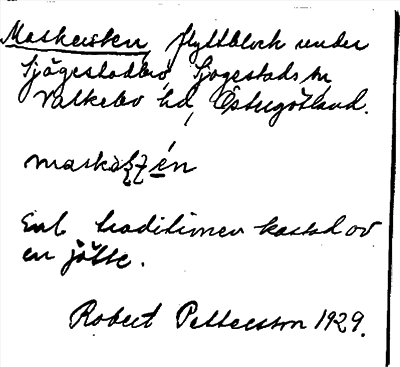 Maskasten, flyttblock under
Sjögestadbro, Sjögestads sn,
Valkebo hd, Östergötland.
Enl. traditionen kastad av
en jätte.
Robert Pettersson 1929.